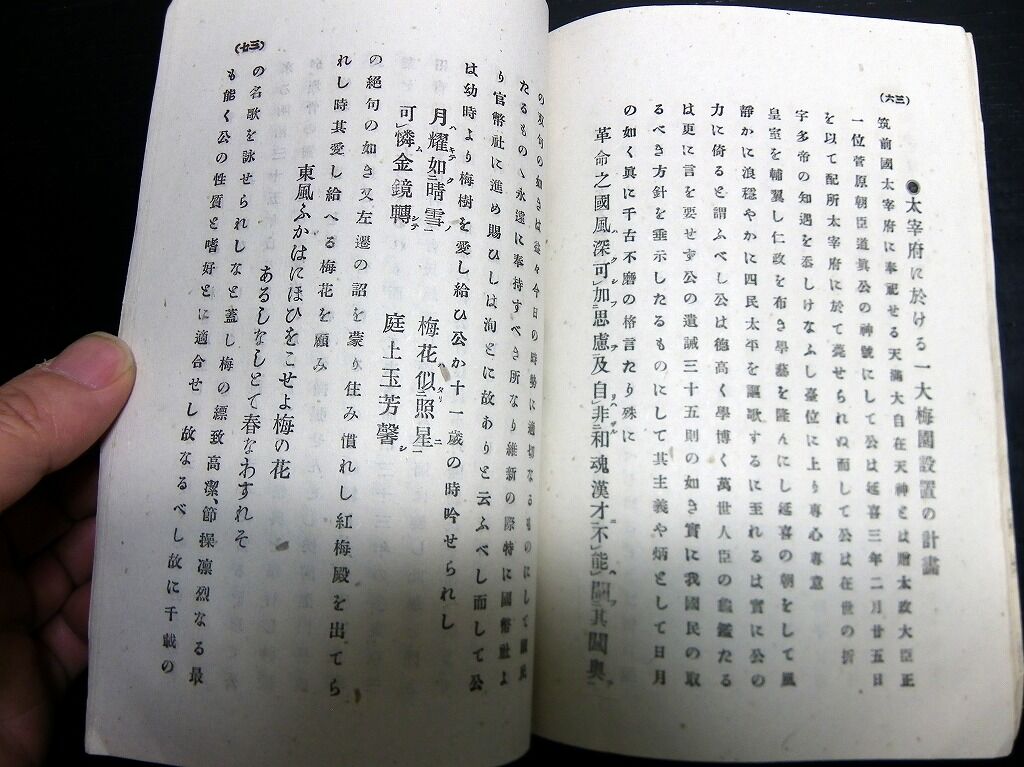 (三六)
●太宰府に於ける一大梅園設置の計畫
筑前國太宰府に奉祀せる天滿大自在天神とは贈太政大臣正
一位菅原朝臣道眞公の神號にして公は延喜三年二月廿五日
を以て配所太宰府に於て薨せられぬ而して公は在世の折
宇多帝の知遇を忝しけなふし臺位に上り專心專意
皇室を輔翼し仁政を布き學藝を隆んにし延喜の朝をして風
靜かに浪穩やかに四民太平を謳歌するに至れるは實に公の
力に倚ると謂ふべし公は德高く學博く萬世人臣の龜鑑たる
は更に言を要せず公の遺誡三十五則の如き實に我國民の取
るべき方針を垂示したるものにして其主義や炳として日月
の如く眞に千古不磨の格言たり殊に
革命之國風深可加思慮及自非和魂漢才不能闞其閫奧
の如きは益々今日の時勢に適切なるものにして國民
たるもの永遠に奉持すべき所なり維新の際特に國幣社よ
り官幣社に進め賜ひしは洵とに故ありと云ふべし而して公
は幼時より梅樹を愛し給ひ公か十一歲の時吟せられし
月耀如晴雪 梅花似照星
可憐金鏡轉 庭上玉芳馨
の絕句の如き又左遷の詔を蒙り住み慣れし紅梅殿を出てら
れし時其愛し給へる梅花を顧み
東風ふかはにほひをこせよ梅の花
あるしなしとて春なわすれそ
の名歌を詠せられしなと蓋し梅の縹致高潔、節操凛烈なる最
も能く公の性質と嗜好とに適合せし故なるべし故に千載の
(三七)